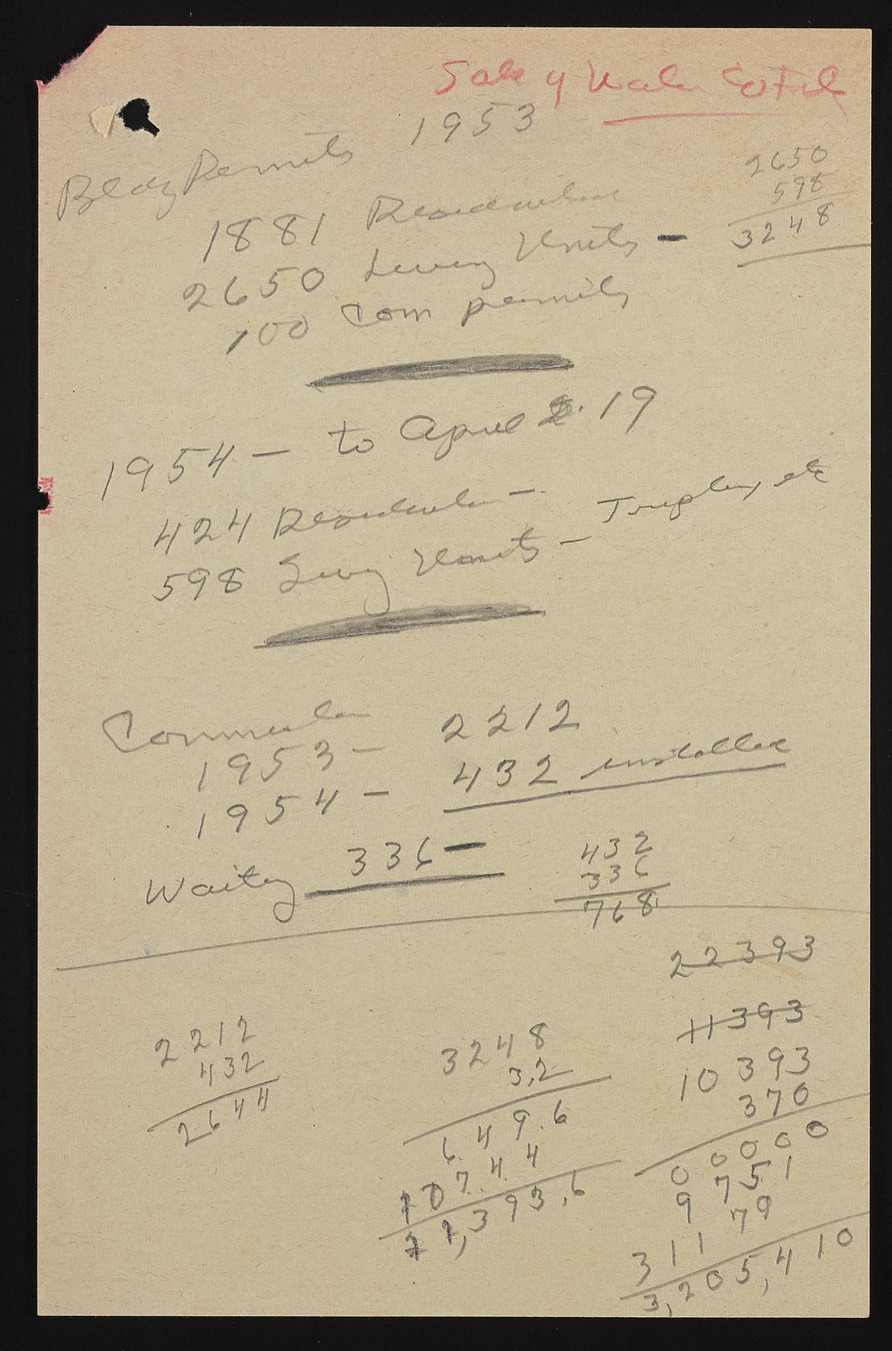 Sale of Water
1953
Bldg Permits
2650
598
3248
1881 Residential
2650 Living Units -
100 Com permits
1954 - to April 19
424 Residential -
598 Living Units - Triplex, etc
1953 - 2212
1954 - 432 installed
Waiting 336 -
432
336
768
22393
11393
2212
432
2644
3248
3.2
6 4 9.6
10 7.4.4
11,393.6
10393
370
00000
9751
79
311
3,205,410